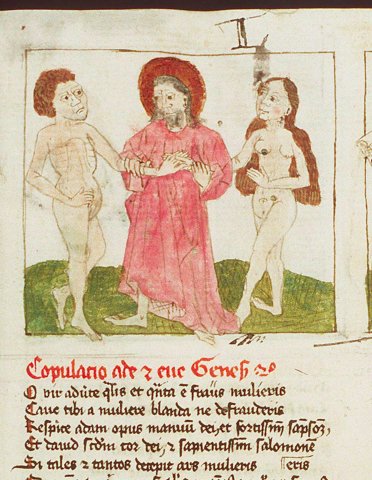 I
Copulatio ade ⁊ eue Genes̄ 2o
O vir adūte q̄lis et q̄nta ē fraus mulieris
Caue tibi a muliere blanda ne defrauderis
Respice adam opus manuū dei, et fortissim̄ sāpson̄,
Et dauid scd̄m cor dei, ⁊ sapientissim̄ salomonem
Si tales et tantos decepit ars mulieris eris